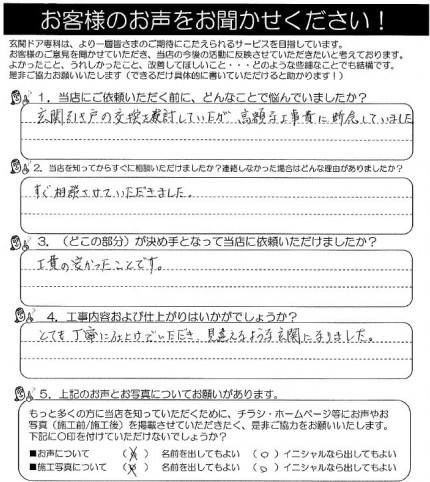 お客様のお声をお聞かせください！
玄関ドア専科は、より一層皆さまのご期待にこたえられるサービスを目指しています。
お客様のご意見を聞かせていただき、当店の今後の活動に反映させていただきたいと考えております。
よかったこと、うれしかったこと、改善してほしいこと・・・どのような些細なことでも結構です。
是非ご協力お願いいたします（できるだけ具体的に書いていただけると助かります！）
1．当店にご依頼いただく前に、どんなことで悩んでいましたか？
玄関引き戸の交換を検討していたが、高額な工事費に断念していました
2．当店を知ってからすぐに相談いただけましたか？連絡しなかった場合はどんな理由がありましたか？
すぐ相談させていただきました。
3．（どこの部分）が決め手となって当店に依頼いただけましたか？
工費の安かったことです。
4．工事内容および仕上がりはいかがでしょうか？
とても丁寧に仕上げていただき、見違えるような玄関になりました。
5．上記のお声とお写真についてお願いがあります。
もっと多くの方に当店を知っていただくために、チラシ・ホームページ等にお声やお
写真（施工前/施工後）を掲載させていただきたく、是非ご協力をお願いいたします。
下記に〇印を付けていただけないでしょうか？
■お声について （×） 名前を出してもよい （○） イニシャルなら出してもよい
■施工写真について （×） 名前を出してもよい （○） イニシャルなら出してもよい